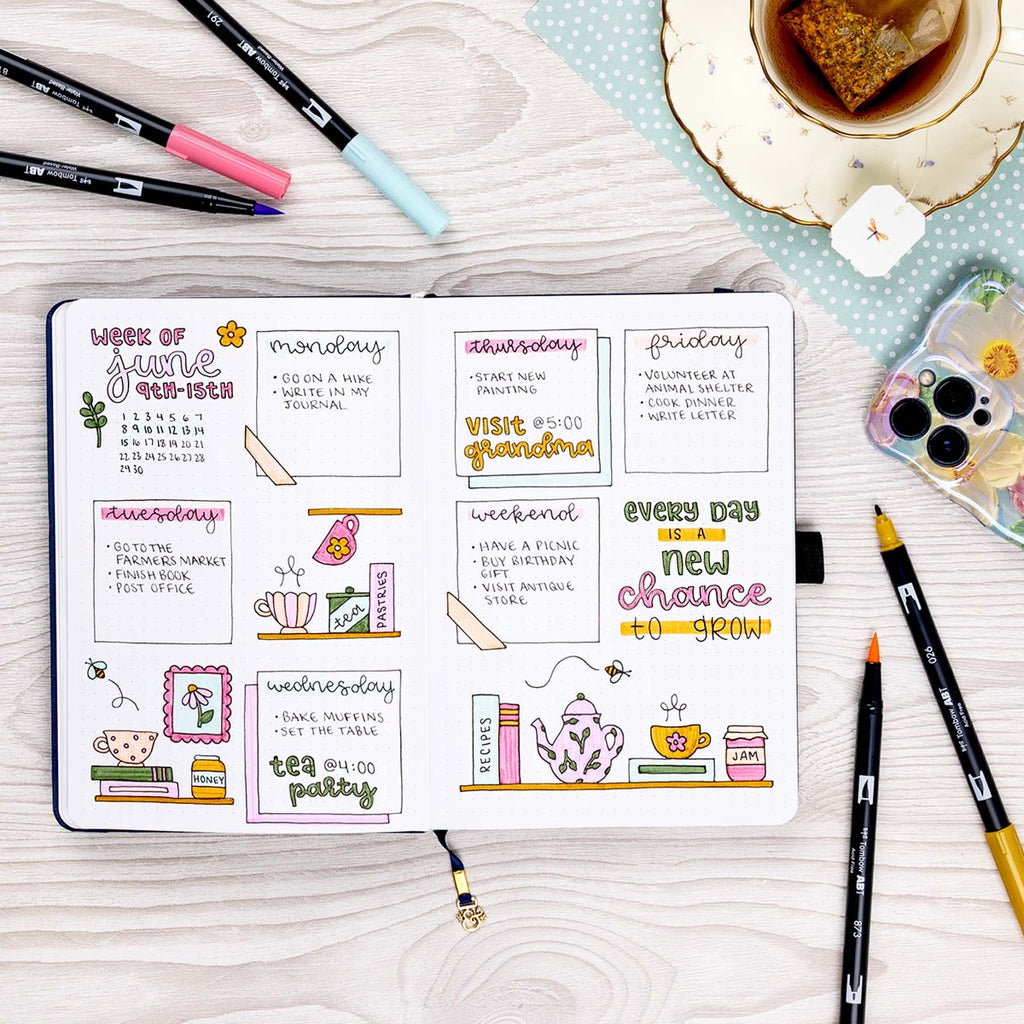 WEEK OF
june
9TH-15TH
1 2 3 4 5 6 7
8 9 10 11 12 13 14
15 16 17 18 19 20 21
22 23 24 25 26 27 28
29 30
monday
• GO ON A HIKE
• WRITE IN MY
JOURNAL
tuesday
• GO TO THE
FARMERS MARKET
• FINISH BOOK
• POST OFFICE
tea
PASTRIES
HONEY
wednesday
• BAKE MUFFINS
• SET THE TABLE
tea @4:00
party
thursday
• START NEW
PAINTING
VISIT @5:00
grandma
friday
• VOLUNTEER AT
ANIMAL SHELTER
• COOK DINNER
• WRITE LETTER
weekend
• HAVE A PICNIC
• BUY BIRTHDAY
GIFT
• VISIT ANTIQUE
STORE
EVERY DAY
IS A
NEW
chance
TO GROW
RECIPES
JAM
291
Tombow ABT
Water-Based
Tombow ABT
Water-Based
Tombow ABT
Water-Based
026
Tombow ABT
Acid Free
Tombow ABT
Acid Free
873